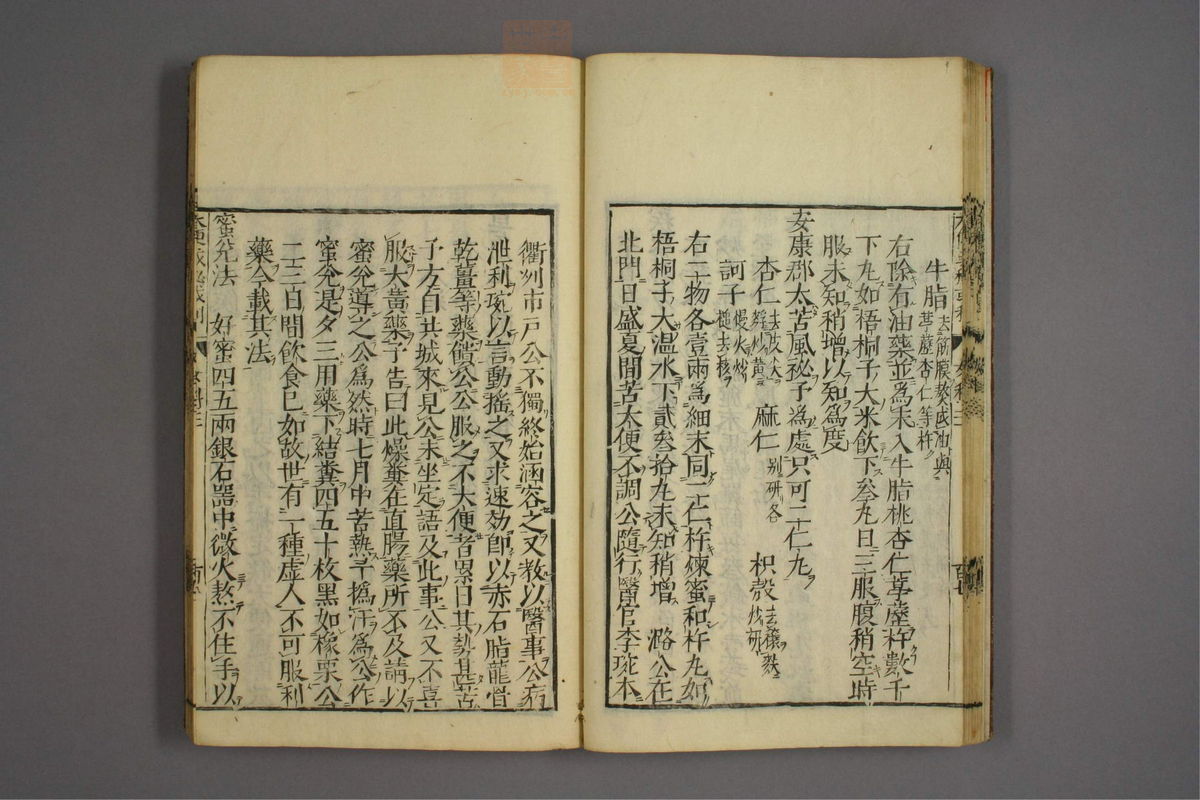 牛脂去筋膜熬成油與葶藶杏仁等杵
右除有油藥並爲末入牛脂桃杏仁葶藶杵數千
下丸如梧桐子大米飮下叁丸日三服腹稍空時
服未知稍增以知爲度
安康郡太苦風祕予爲處只可二仁丸
杏仁去皮尖麩炒黃 麻仁別研各 枳殼去穰麩炒研
訶子慢火炒槌去核
右二物各壹兩爲細末同二仁杵煉蜜和杵丸如
梧桐子大温水下貳叁拾丸未知稍增 潞公在
北門日盛夏間苦大便不調公隨行醫官李琬本
衢州市戸公不獨終始涵容之又教以醫事公病
泄利琬以言動搖之又求速効即以赤石脂龍骨
乾薑等藥饋公公服之不大便者累日其勢甚苦
予方自共城來見公未坐定語及此事公又不喜
服大黃藥予告曰此燥糞在直腸藥所不及請以
蜜兊導之公爲然時七月中苦熱予撝汗爲公作
蜜兊是夕三用藥下結糞四五十枚黑如橡栗公
二三日間飮食已如故世有一種虛人不可服利
藥今載其法
蜜兊法 好蜜四五兩銀石器中微火熬不住手以